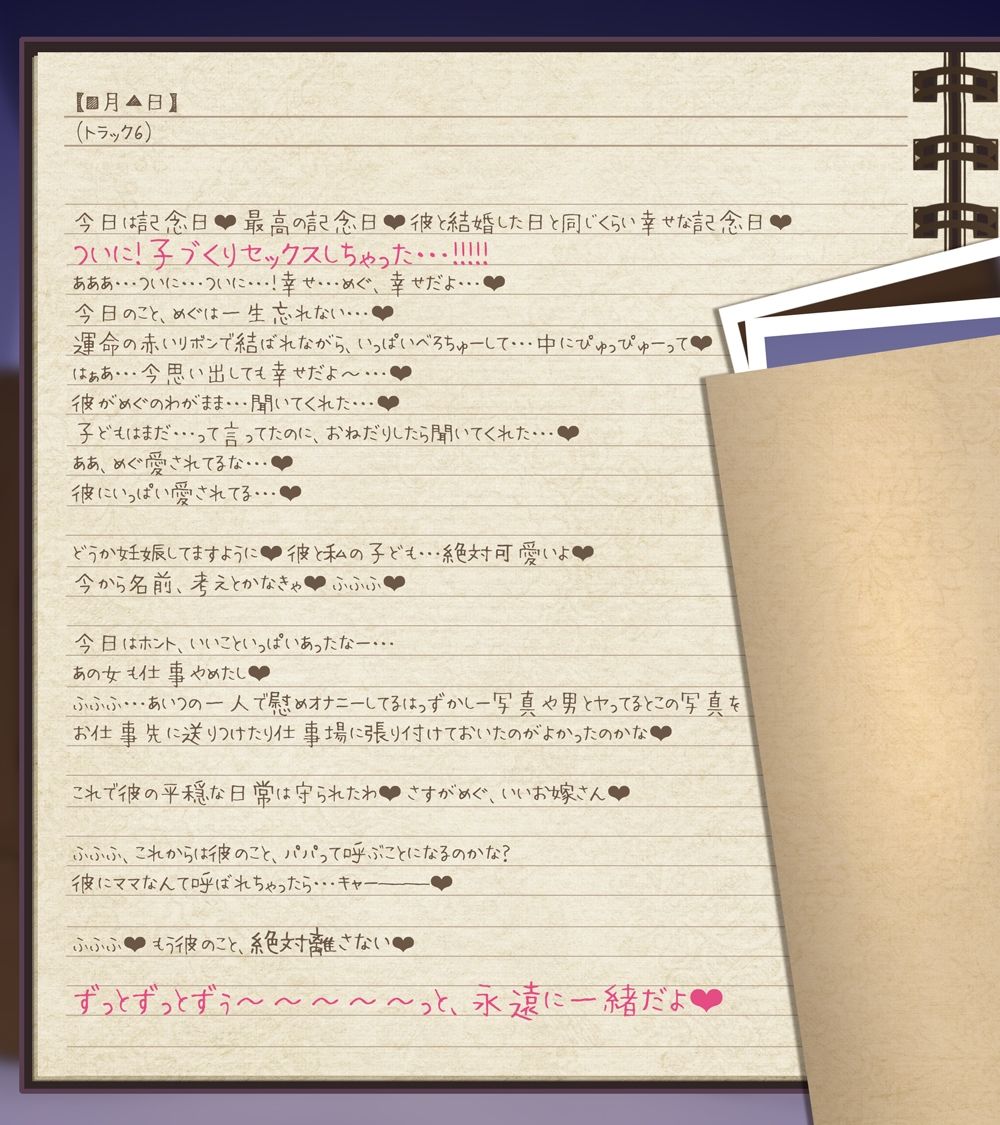 【■月▲日】
(トラック6)
今日は記念日♥最高の記念日♥彼と結婚した日と同じくらい幸せな記念日♥
ついに！子づくりセックスしちゃった・・・!!!!!
あああ・・・ついに・・・ついに・・・！幸せ・・・めぐ、幸せだよ・・・♥
今日のこと、めぐは一生忘れない・・・♥
運命の赤いリボンで結ばれながら、いっぱいべろちゅーして・・・中にぴゅっぴゅーって♥
はぁあ・・・今思い出しても幸せだよ～・・・♥
彼がめぐのわがまま・・・聞いてくれた・・・♥
子どもはまだ・・・って言ってたのに、おねだりしたら聞いてくれた・・・♥
ああ、めぐ愛されてるな・・・♥
彼にいっぱい愛されてる・・・♥
どうか妊娠してますように♥彼と私の子ども・・・絶対可愛いよ♥
今から名前、考えとかなきゃ♥ふふふ♥
今日はホント、いいこといっぱいあったなー・・・
あの女も仕事やめたし♥
ふふふ・・・あいつの一人で慰めオナニーしてるはっずかしー写真や男とヤってるとこの写真を
お仕事先に送りつけたり仕事場に張り付けておいたのがよかったのかな♥
これで彼の平穏な日常は守られたわ♥さすがめぐ、いいお嫁さん♥
ふふふ、これからは彼のこと、パパって呼ぶことになるのかな？
彼にママなんて呼ばれちゃったら・・・キャー―――♥
ふふふ♥もう彼のこと、絶対離さない♥
ずっとずっとずぅ～～～～～っと、永遠に一緒だよ♥